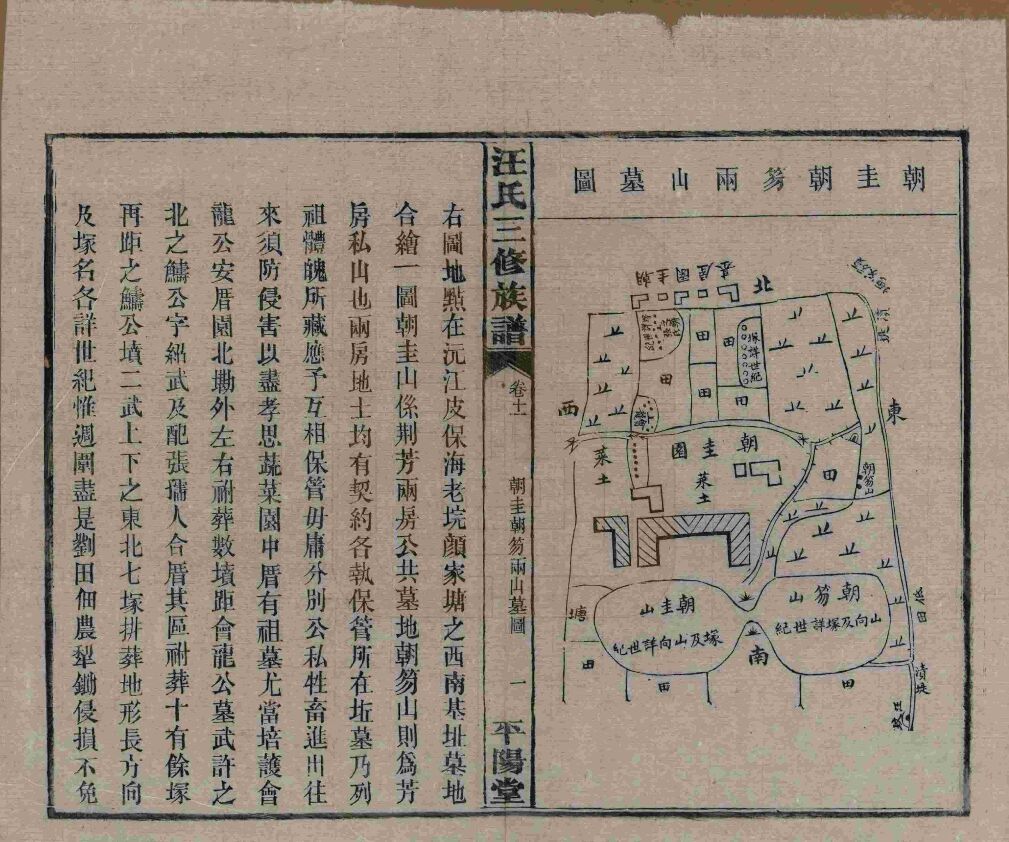 朝圭朝笏兩山墓圖
北
東
西
南
朝圭園
菜土
菜土
田
田
田
田
田
田
塚詳世紀
朝笏山
朝圭山
塚及山向詳世紀
朝笏山
山向及塚詳世紀
塘
田
田
田
汪氏三修族譜
卷十一
朝圭朝笏兩山墓圖
一
平陽堂
右圖地點在沅江皮保海老垸顔家塘之西南基址墓地
合繪一圖朝圭山係荆芳兩房公共墓地朝笏山則爲芳
房私山也兩房地土均有契約各執保管所在坵墓乃列
祖體魄所藏應予互相保管毋庸分別公私牲畜進出往
來須防侵害以盡孝思蔬菜園中厝有祖墓尤當培護會
龍公安厝園北塝外左右祔葬數墳距會龍公墓武許之
北之鱐公字紹武及配張孺人合厝其區祔葬十有餘塚
再距之鱐公墳二武上下之東北七塚排葬地形長方向
及塚名各詳世紀惟週圍盡是劉田佃農犁鋤侵損不免